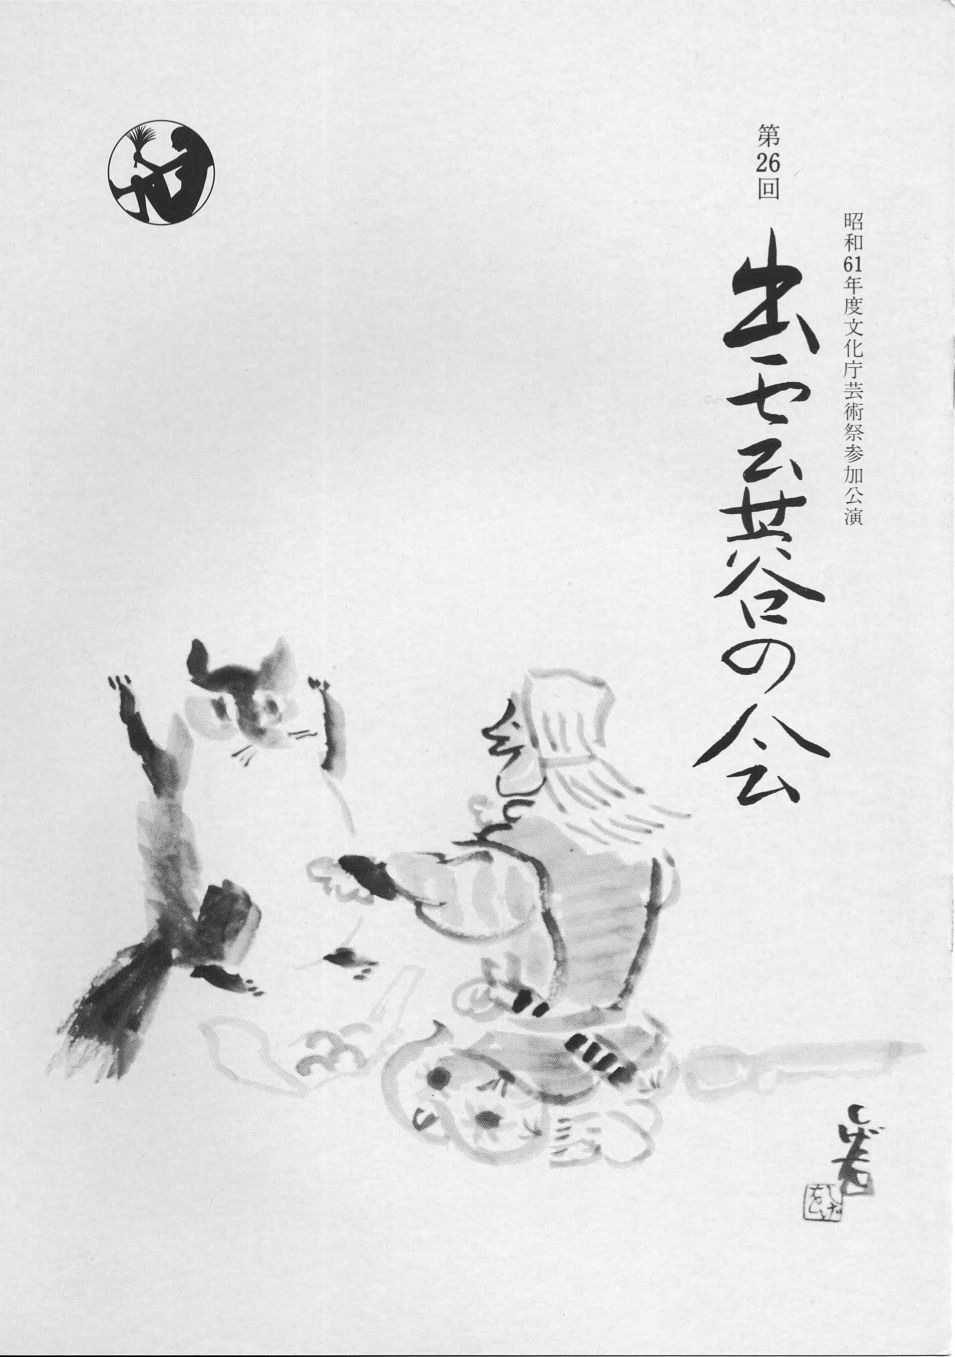 昭和61年度文化庁芸術祭参加公演
第26回
出雲蓉の会